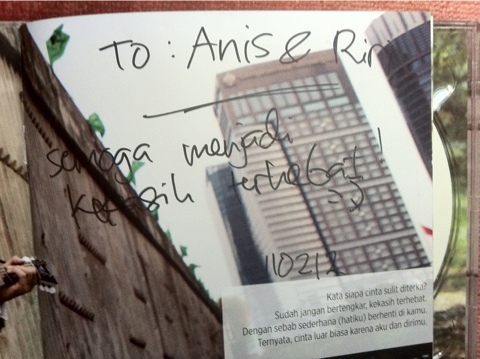 TO : Anis & Riri
semoga menjadi
kekasih terhebat !
110212
Kata siapa cinta sulit diterka?
Sudah jangan bertengkar, kekasih terhebat.
Dengan sebab sederhana (hatiku) berhenti di kamu.
Ternyata, cinta luar biasa karena aku dan dirimu.